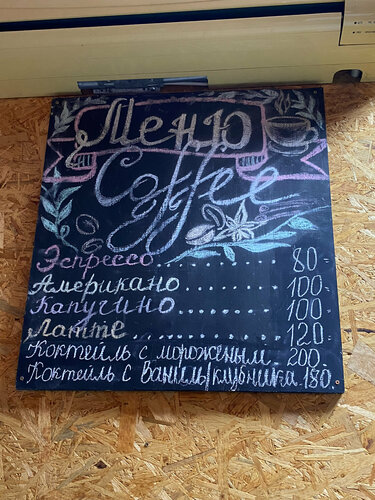 Меню
Coffee
Эспрессо............. 80-
Американо.......... 100-
Капучино............ 100
Латте................. 120
Коктейль с мороженым. 200
Коктейль с Ванилм/клубника. 180.